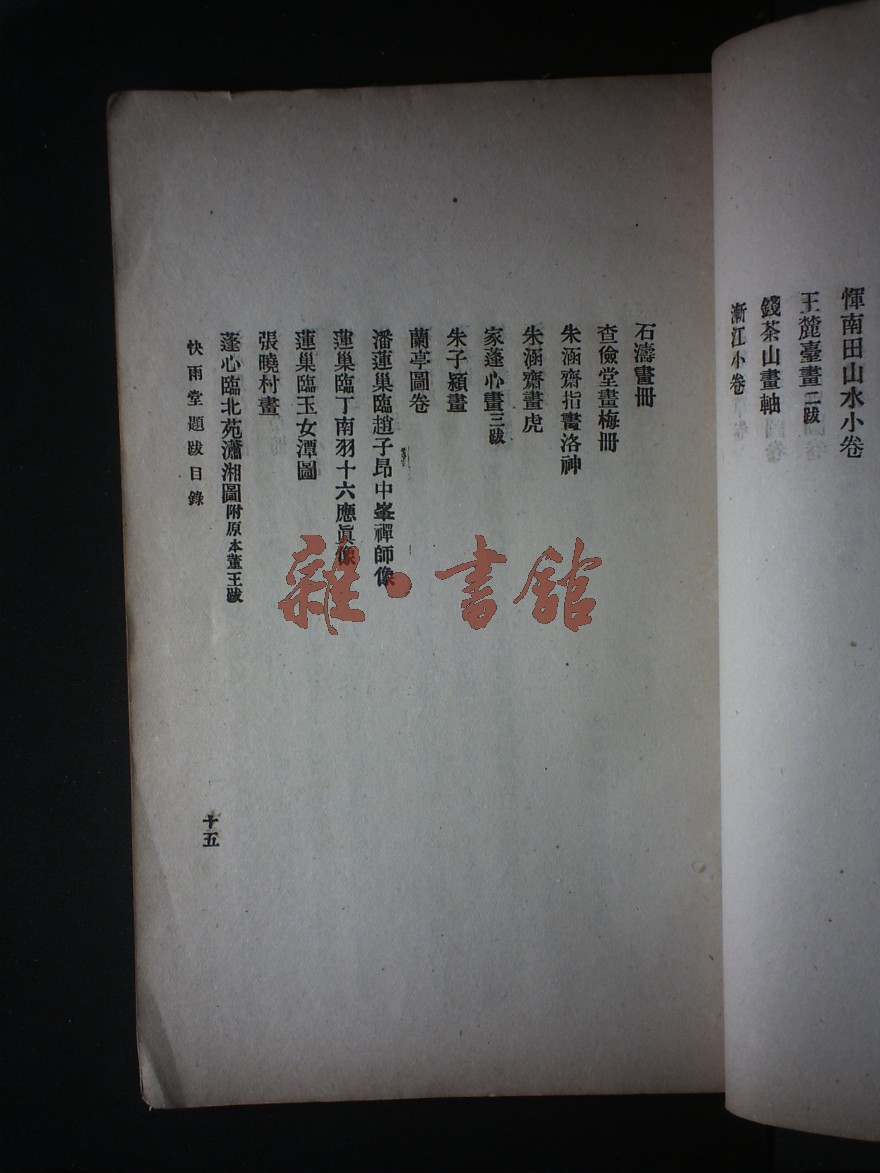 惲南田山水小卷
王麓臺畫二跋
錢茶山畫軸
漸江小卷
石濤畫冊
查儉堂畫梅冊
朱涵齋指畫洛神
朱涵齋畫虎
家蓬心畫三跋
朱子潁畫
蘭亭圖卷
潘蓮巢臨趙子昂中峯禪師像
蓮巢臨丁南羽十六應眞像
蓮巢臨玉女潭圖
張曉村畫
蓬心臨北苑瀟湘圖附原本董王跋
快雨堂題跋目錄
十五
雜·書館